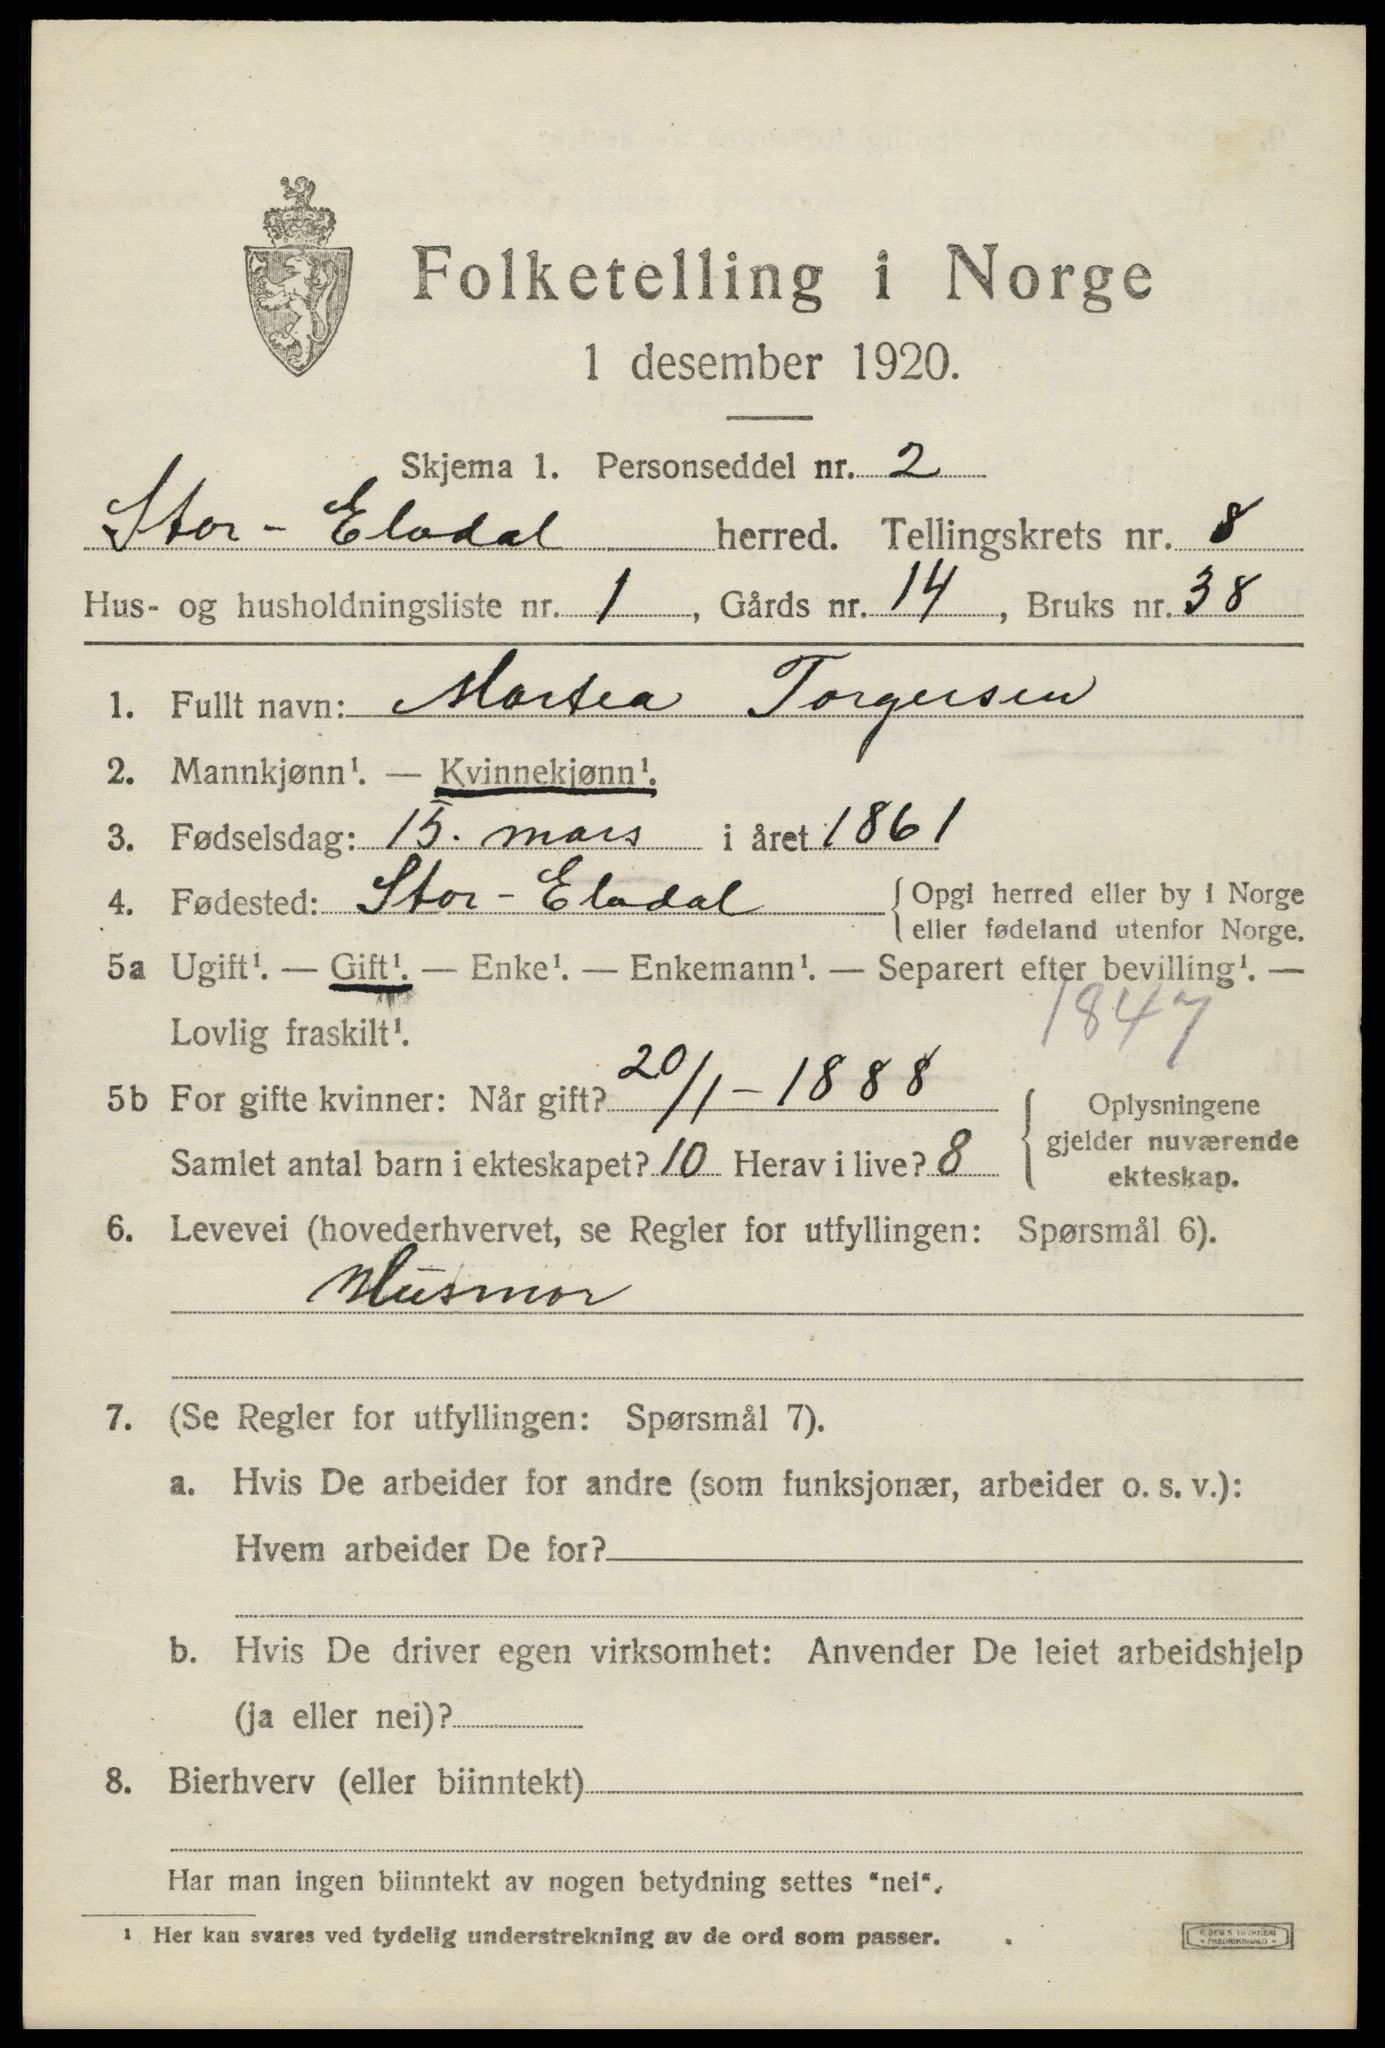 Folketelling i Norge
1 desember 1920.
Skjema 1. Personseddel nr. 2
Stor-Elvdal herred. Tellingskrets nr. 8
Hus- og husholdningsliste nr. 1, Gårds nr. 14, Bruks nr. 38
1. Fullt navn: Martea Torgersen
2. Mannkjønn¹. — Kvinnekjønn¹.
3. Fødselsdag: 15. mars i året 1861
4. Fødested: Stor-Elvdal { Opgi herred eller by i Norge
eller fødeland utenfor Norge.
5a Ugift¹. — Gift¹. — Enke¹. — Enkemann¹. — Separert efter bevilling¹. —
Lovlig fraskilt¹. 1847
5b For gifte kvinner: Når gift? 20/1-1888 { Oplysningene
gjelder nuværende
Samlet antal barn i ekteskapet? 10 Herav i live? 8 ekteskap.
6. Levevei (hovederhvervet, se Regler for utfyllingen: Spørsmål 6).
Husmor
7. (Se Regler for utfyllingen: Spørsmål 7).
a. Hvis De arbeider for andre (som funksjonær, arbeider o. s. v.):
Hvem arbeider De for?
b. Hvis De driver egen virksomhet: Anvender De leiet arbeidshjelp
(ja eller nei)?
8. Bierhverv (eller biinntekt)
Har man ingen biinntekt av nogen betydning settes "nei".
¹ Her kan svares ved tydelig understrekning av de ord som passer.
FREDRIKSHALD